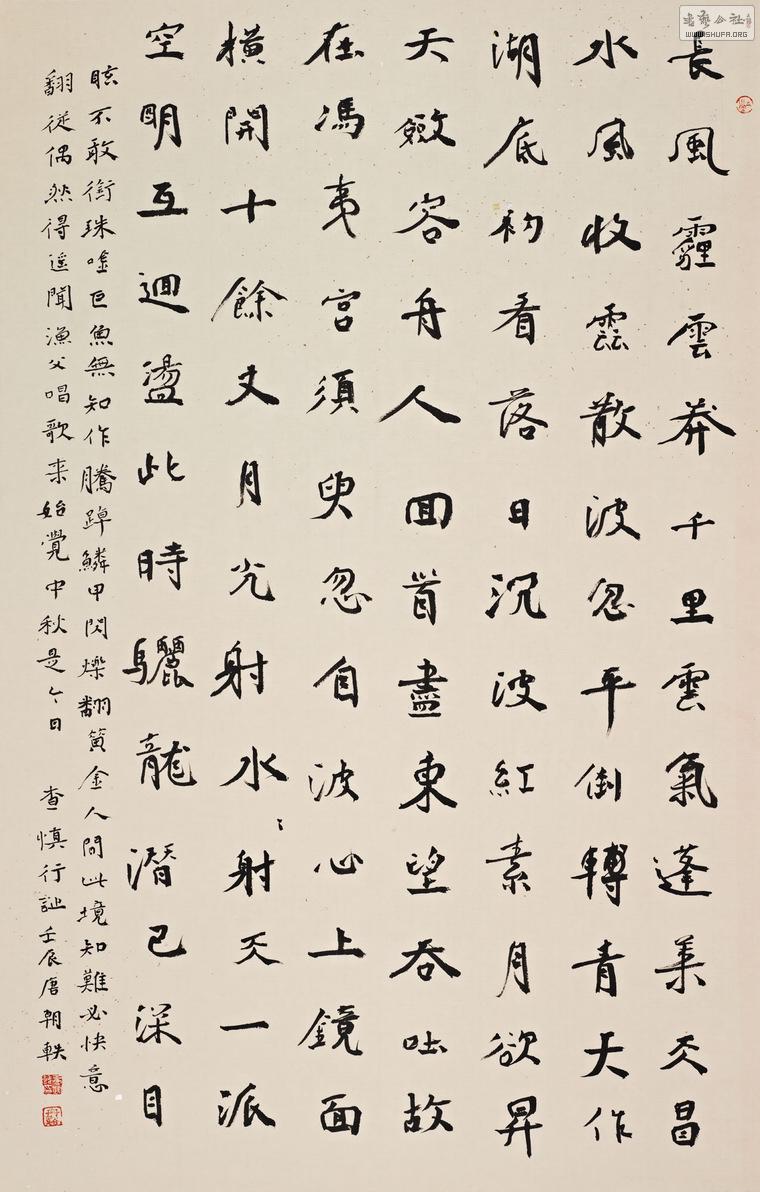 長風霾雲莽千里雲氣蓬蓬天冒
水風收雲散波忽平倒轉青天作
湖底初看落日沉波紅素月欲昇
天斂容舟人回首盡東望吞吐故
在馮夷宮須臾忽自波心上鏡面
橫開十餘丈月光射水〻射天一派
空明互迴盪此時驪龍潛已深目
眩不敢銜珠巨魚無知作騰踔鱗甲閃爍翻黃金人間此境知難必快意
翻從偶然得遙聞漁父唱歌來始覺中秋是今日 查慎行詩 壬辰唐朝軼
書藝公社
WWW.SHUFA.ORG